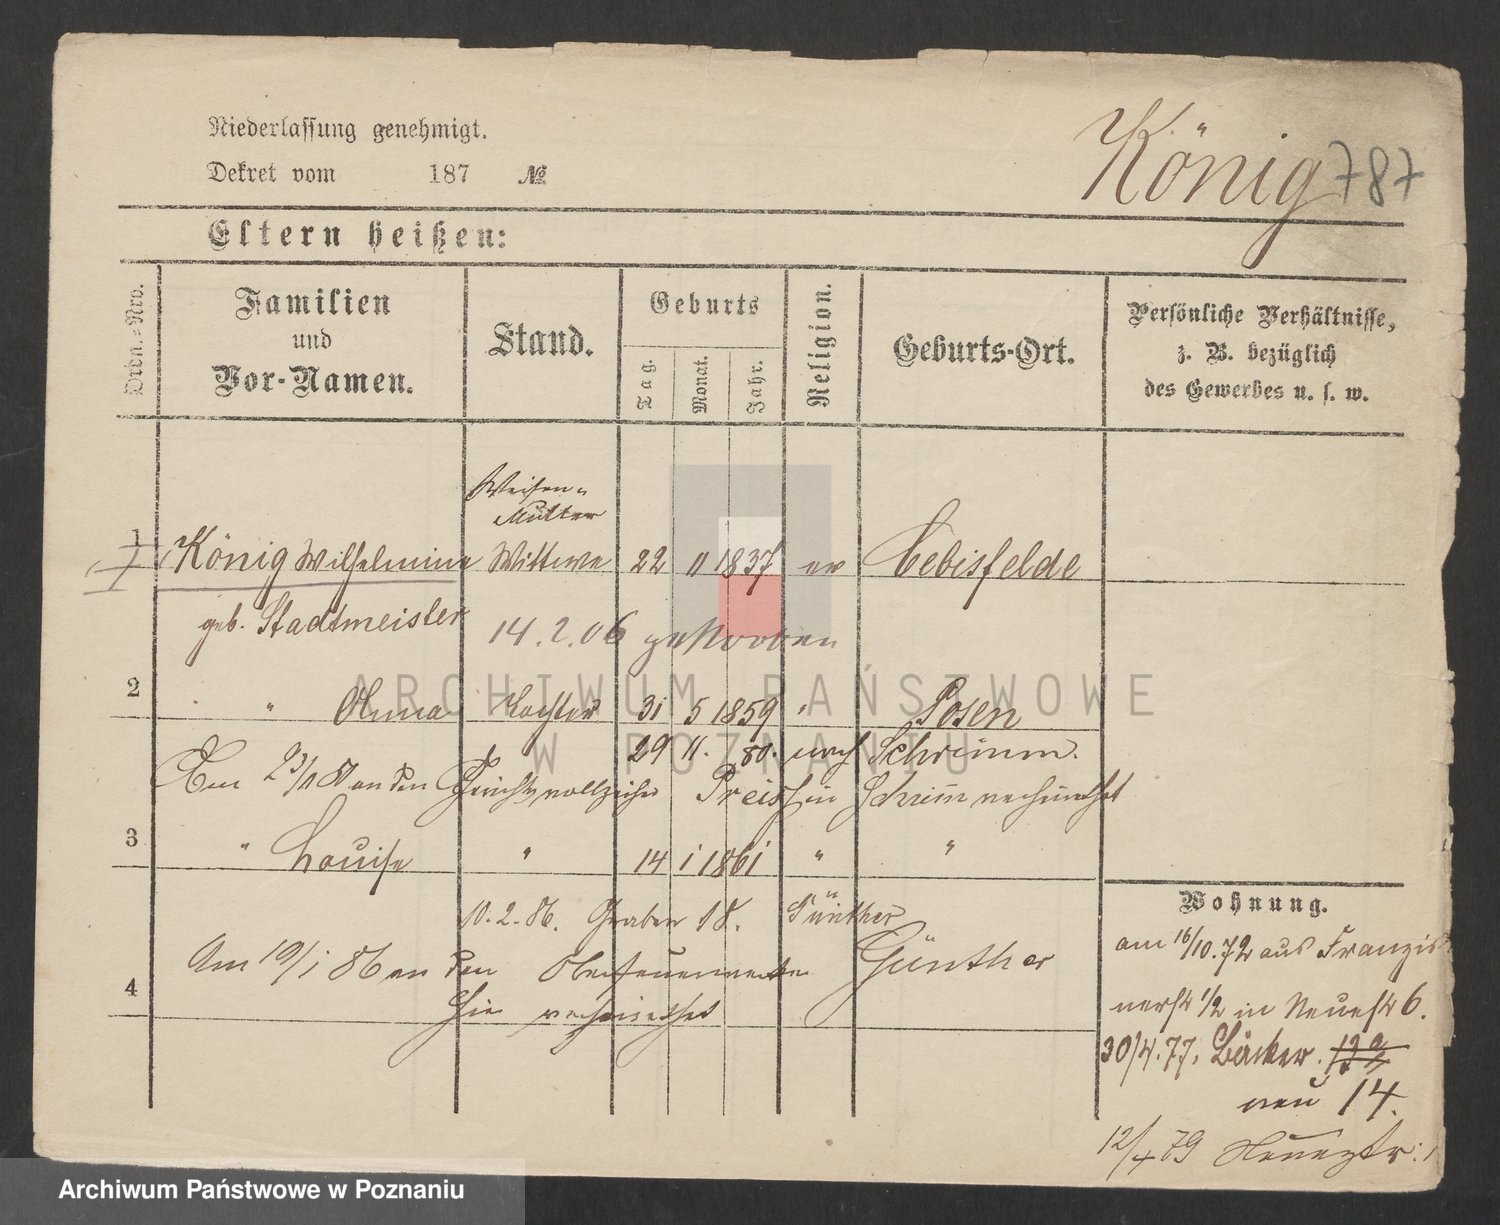 Niederlassung genehmigt.
Dekret vom 187 №
König 787
Eltern heißen:
Orden.-Nro.
Familien und Vor-Namen.
Stand.
Geburts
Tag.
Monat.
Jahr.
Religion.
Geburts-Ort.
Persönliche Verhältnisse,
z. B. bezüglich
des Gewerbes u. s. w.
Waisen-
Mutter
1 König Wilhelmine Wittwe 22 11 1837 ev Oebisfelde
geb. Stadtmeister
14.2.06 gestorben
2 " Anna Tochter 31 5 1859 " Posen
29 11. 80. nach Schrimm.
Am 23/1 81 an den Gerichtsvollzieher Preiss in Schrimm verheirathet
3 " Louise " 14 1 1861 " "
10.2.86. Graben 18. Günther
Am 19/1 86 an den Oberfeuerwerker Günther
4 hier verheirathet
Wohnung.
am 16/10.72 aus Franzis
nerst 1/2 in Neuest 6.
30/4.77. Bäcker. 13a
neu 14.
12/4 79 Neuestr: 1
ARCHIWUM PAŃSTWOWE
W POZNANIU
Archiwum Państwowe w Poznaniu